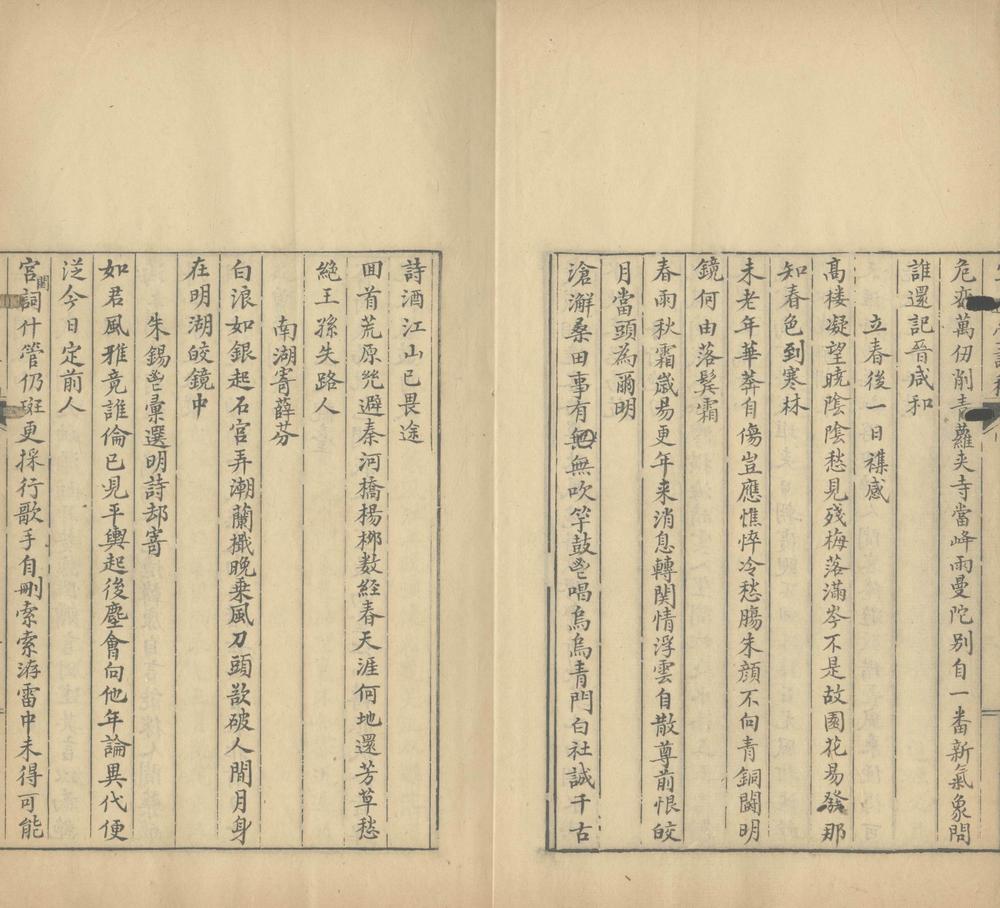 危㟁萬仞削青蘿夾寺當峰雨曼陀別自一番新氣象問
誰還記晉咸和
立春後一日襍感
髙樓凝望曉陰陰愁見殘梅落滿岑不是故園花易發那
知春色到寒林
未老年華莾自傷豈應憔悴冷愁膓朱顏不向青銅鬭明
鏡何由落𩯭霜
春雨秋霜嵗易更年来消息轉関情浮雲自散尊前恨皎
月當頭為爾明
滄澥桑田事有無無吹竽鼓瑟唱烏烏青門白社誠千古
詩酒江山已畏途
回首荒原兊避秦河橋楊柳数經春天涯何地還芳草愁
絶王孫失路人
南湖寄薛芬
白浪如銀起石宫弄潮蘭檝晚乘風刀頭欲破人間月身
在明湖皎鏡中
朱錫鬯彙選明詩却寄
如君風雅竟誰倫已見平輿起後塵會向他年論異代便
㳂今日定前人
宮閨詞什管仍斑更採行歌手自刪索索游雷中未得可能